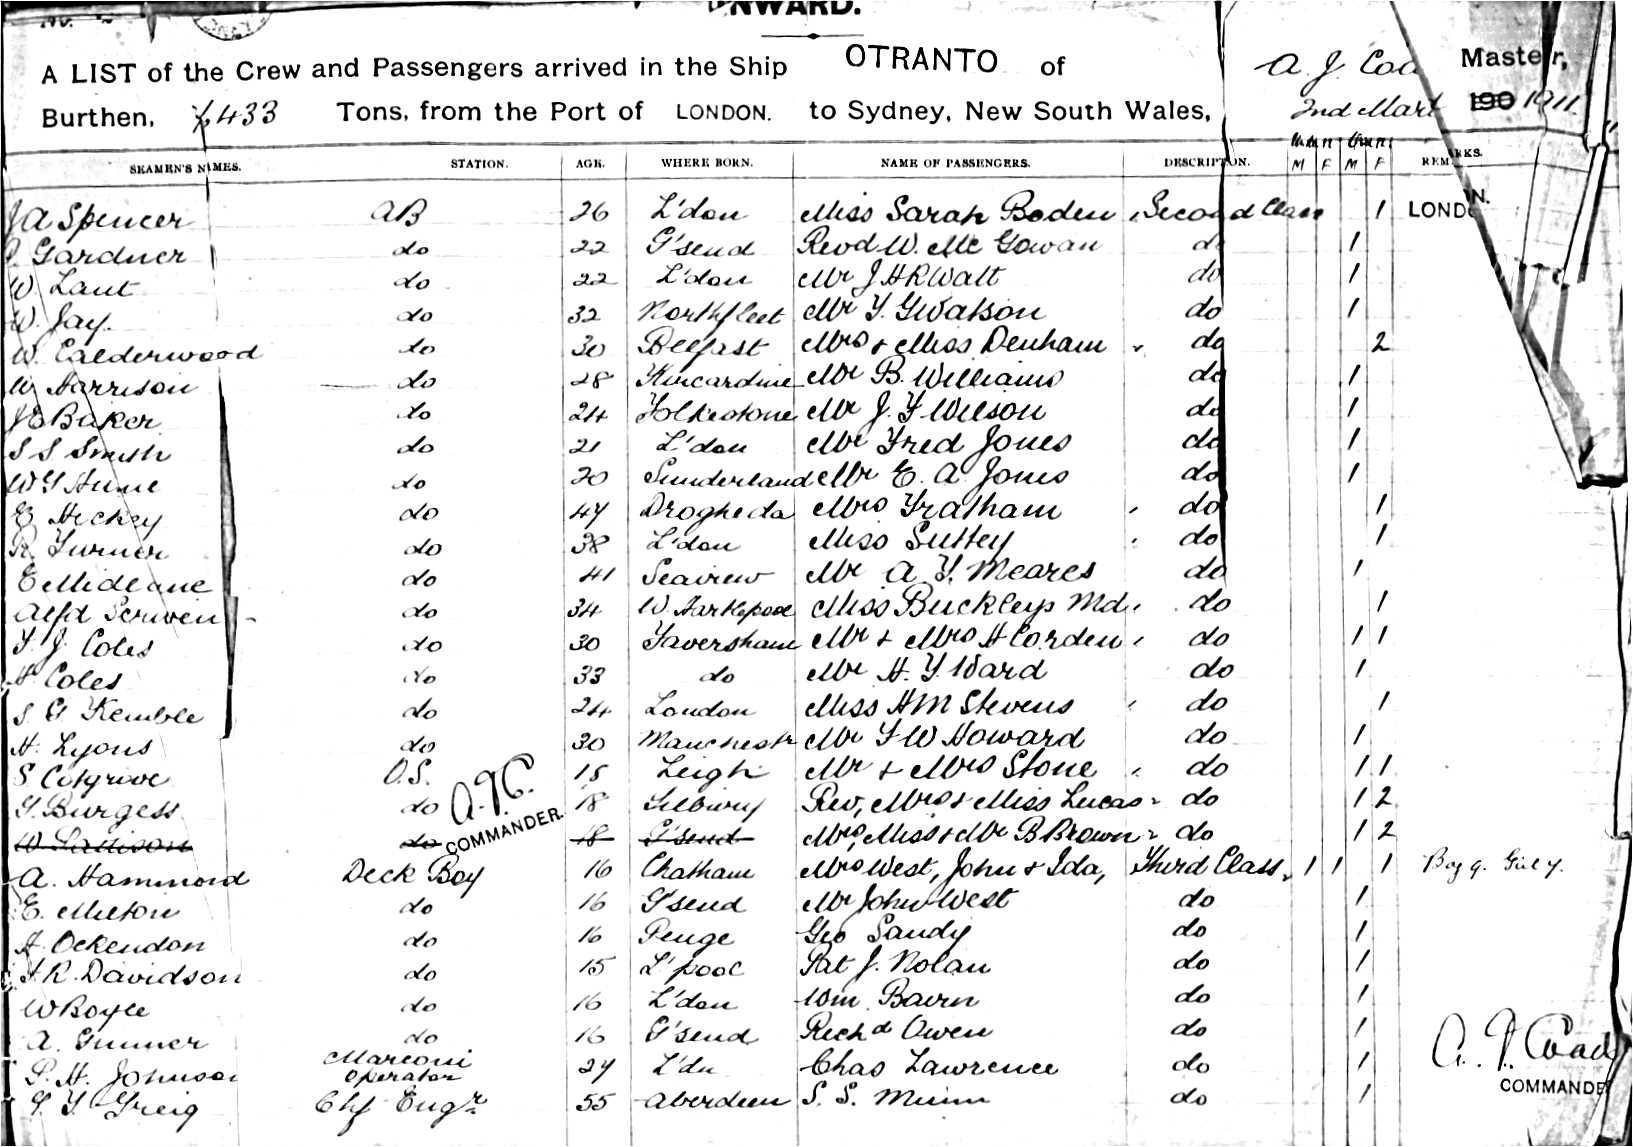 ONWARD.
A LIST of the Crew and Passengers arrived in the Ship OTRANTO of A. J. Coa Master,
Burthen, Tons, from the Port of LONDON. to Sydney, New South Wales, 2nd Mar 190 1911
M F M F
SEAMEN'S NAMES. STATION. AGE. WHERE BORN. NAME OF PASSENGERS. DESCRIPTION. REMARKS.
J A Spencer AB 26 L'don Miss Sarah Boden Second Class 1 LONDON.
Gardner do 22 G'send Revd W. Mc Gowan do 1
W Laut do 22 L'don Mr J H R Watt do 1
W. Jay. do 32 Northfleet Mr T. G Watson do 1
W. Calderwood do 30 Belfast Mrs & Miss Denham do 2
W Harrison do 28 Kincardine Mr B. Williams do 1
J E Baker do 24 Folkestone Mr J. F Wilson do 1
S S Smith do 21 L'don Mr Fred Jones do 1
W G Hume do 20 Sunderland Mr E. A. Jones do 1
E Hickey do 47 Drogheda Mrs Tratham do 1
R. Turner do 38 L'don Miss Suttey do 1
E Midlane do 41 Seaview Mr A. Y. Meares do 1
Alfd Scriven do 34 W. Hartlepool Miss Buckleys Md. do 1
T. J. Coles do 30 Faversham Mr & Mrs H Corden do 1 1
H Coles do 33 do Mr H. Y. Ward do 1
S. G Kemble do 24 London Miss H M Stevens do 1
H. Lyons do 30 Manchestr Mr F W Howard do 1
S Cosgrove O.S. 18 Leigh Mr & Mrs Stone do 1 1
G. Burgess do 18 Tilbury Rev, Mrs & Miss Lucas do 1 2
A.J.C.
COMMANDER.
W do 18 G'send Mrs, Miss & Mr B Brown do 1 2
A. Hammond Deck Boy 16 Chatham Mrs West, John & Ida, Third Class 1 1 1 Boy 9. Girl 7.
E. Milton do 16 G'send Mr John West do 1
H. Ockendon do 16 Penge Geo Sandy do 1
H. R. Davidson do 15 L'pool Pat J. Nolan do 1
W Boyle do 16 L'don Wm Bairn do 1
A. Gunner do 16 G'send Richd Owen do 1
P. H. Johnson Marconi Operator 24 L'dn Chas Lawrence do 1
G. T. Greig Chf Engr 55 Aberdeen S. S. Minn do 1
A. J. Coad
COMMANDE